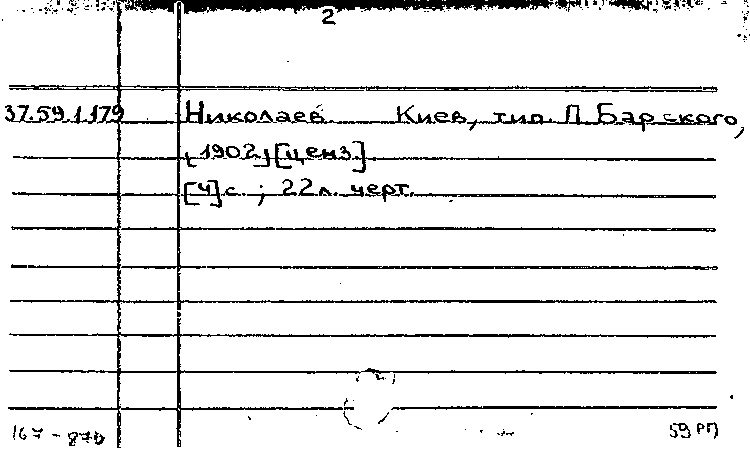 2
37.59.1.179 Николаев. Киев, тип. П. Барского,
[1902] [ценз.]
[4] с. ; 22 л. черт.
167 - 87b
59 РП